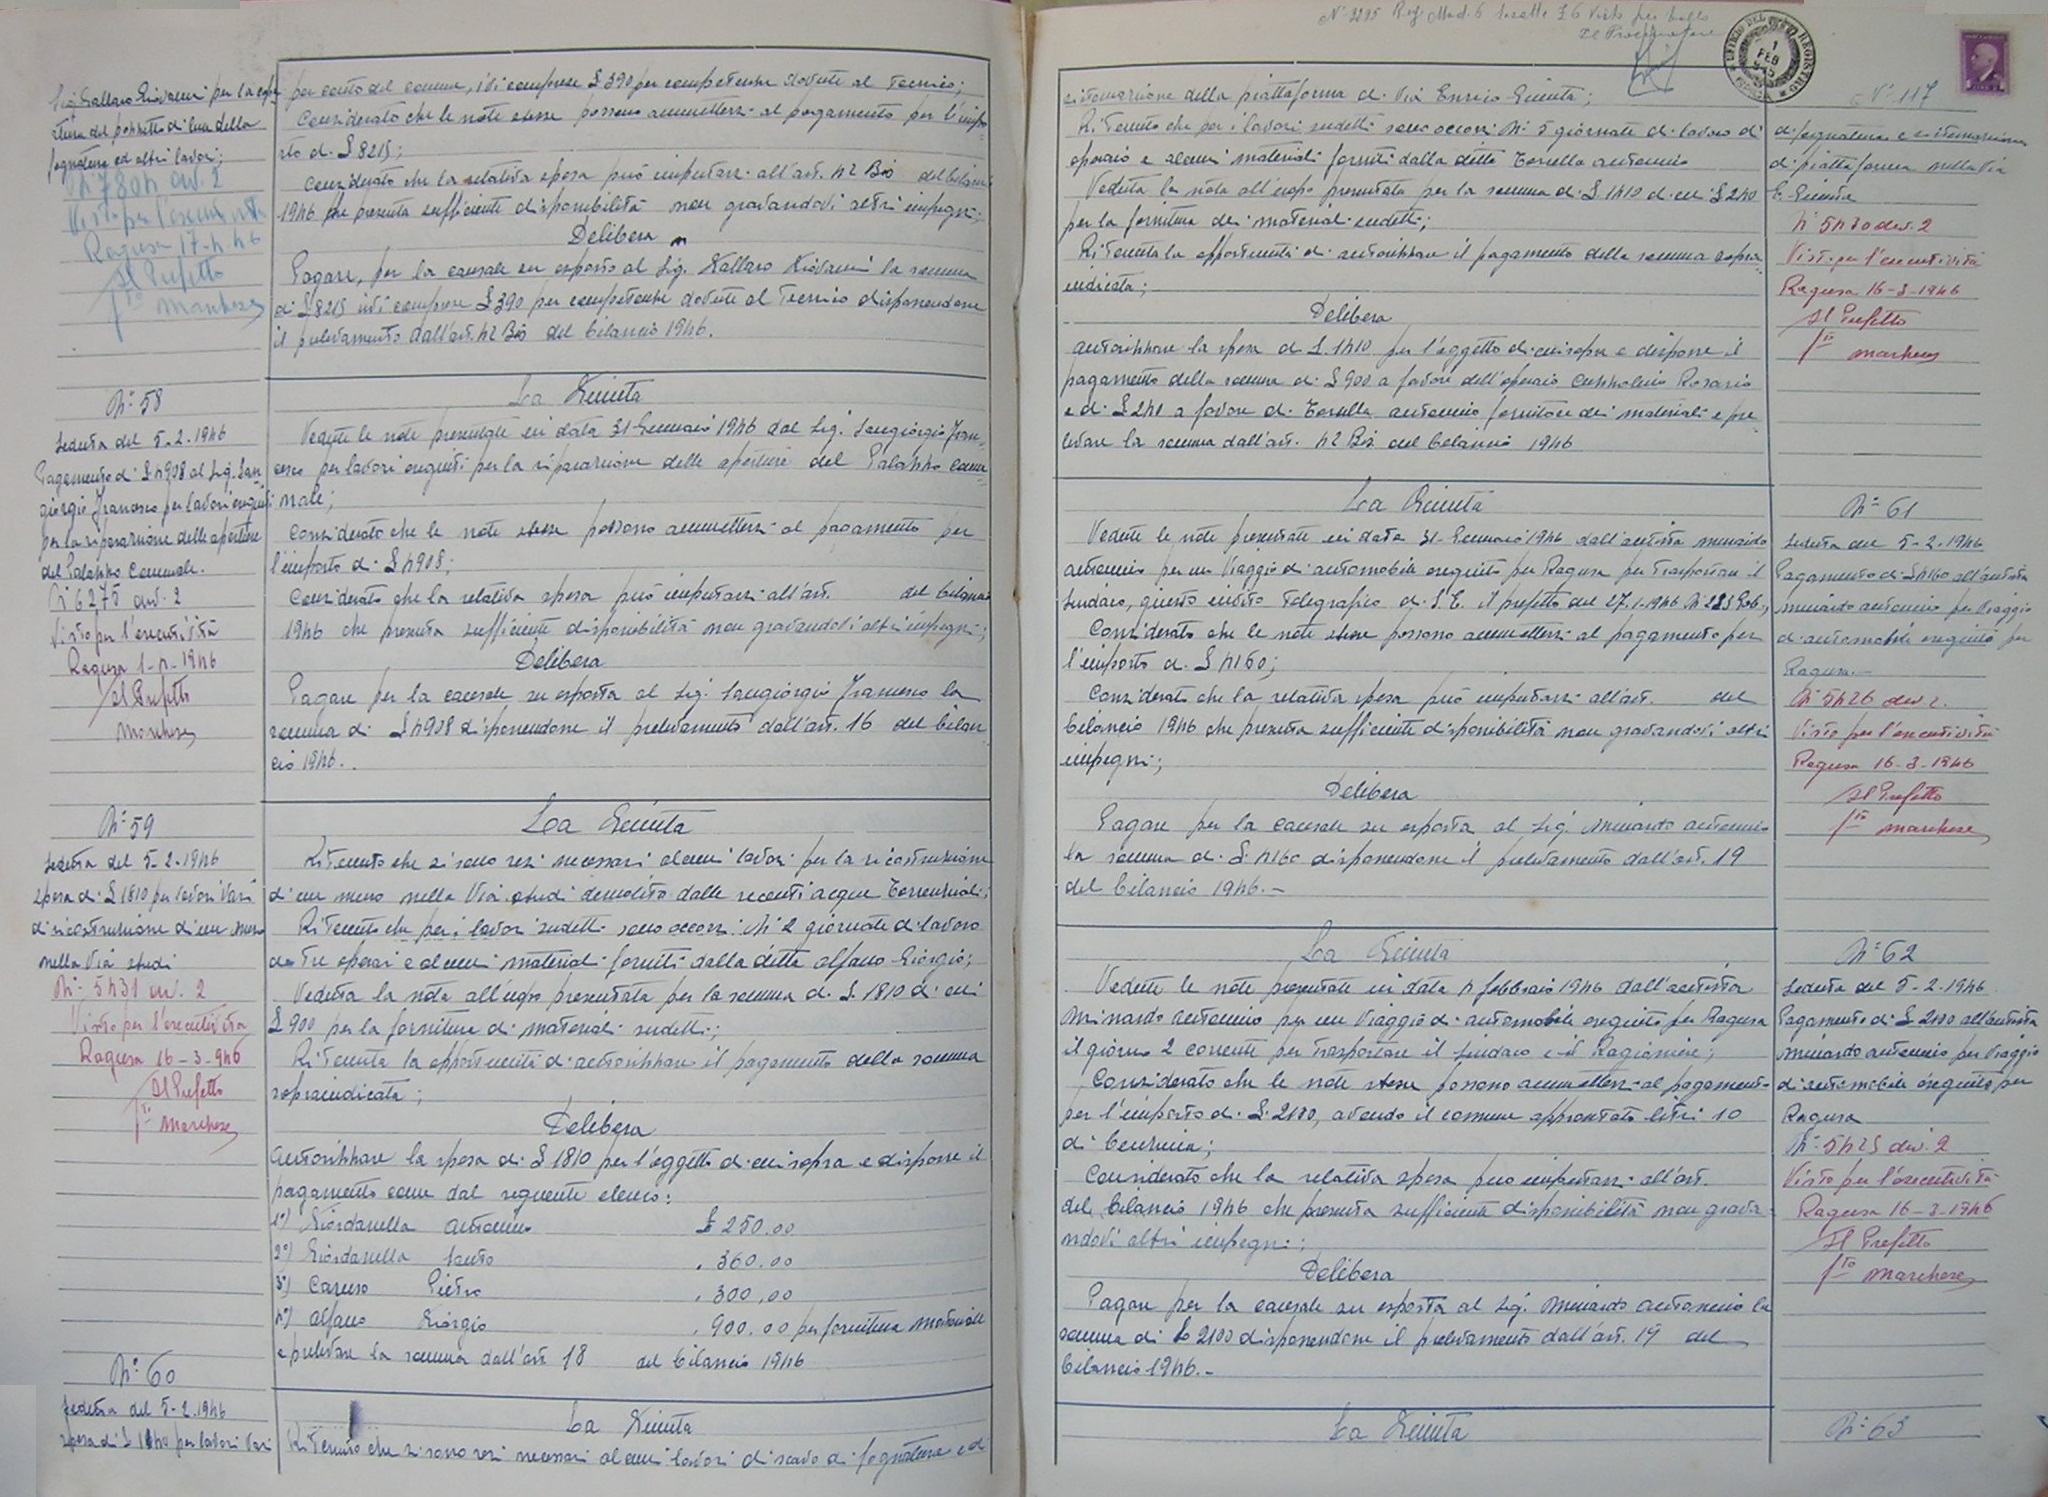 Sig. Gallaro Giovanni per la coper
tura del pozzetto di luce della
fognatura ed altri lavori;
N. 7804 div. 2
Visto per l'esecutività
Ragusa 17-4-46
Il Prefetto
f.to Marchese
per conto del comune, ivi comprese £ 390 per competenze dovute al Tecnico;
Considerato che le note stesse possono ammettersi al pagamento per l'impo-
rto di £ 8215;
Considerato che la relativa spesa può imputarsi all'art. 42 Bis del bilancio
1946 che presenta sufficiente disponibilità non gravandovi altri impegni;
Delibera
Pagare, per la causale su esposta al Sig. Gallaro Giovanni la somma
di £ 8215 ivi comprese £ 390 per competenze dovute al Tecnico disponendone
il prelevamento dall'art. 42 Bis del bilancio 1946.
N° 58
Seduta del 5-2-1946
Pagamento di £ 4908 al Sig. San-
giorgio Francesco per lavori eseguiti
per la riparazione delle aperture
del Palazzo Comunale.
N° 6275 div. 2
Visto per l'esecutività
Ragusa 1-4-1946
Il Prefetto
Marchese
La Giunta
Vedute le note presentate in data 31 Gennaio 1946 dal Sig. Sangiorgio Fran-
cesco per lavori eseguiti per la riparazione delle aperture del Palazzo Comu-
nale;
Considerato che le note stesse possono ammettersi al pagamento per
l'importo di £ 4908;
Considerato che la relativa spesa può imputarsi all'art. del bilancio
1946 che presenta sufficiente disponibilità non gravandovi altri impegni;
Delibera
Pagare per la causale su esposta al Sig. Sangiorgio Francesco la
somma di £ 4908 disponendone il prelevamento dall'art. 16 del bilan-
cio 1946.
N° 59
Seduta del 5-2-1946
Spesa di £ 1810 per lavori vari
di ricostruzione di un muro
nella Via Studi
N° 5431 div. 2
Visto per l'esecutività
Ragusa 16-3-946
Il Prefetto
f.to Marchese
La Giunta
Ritenuto che si sono resi necessari alcuni lavori per la ricostruzione
di un muro nella Via Studi demolito dalle recenti acque torrenziali;
Ritenuto che per i lavori sudetti sono occorsi N° 2 giornate di lavoro
da tre operai e alcuni materiali forniti dalla ditta Alfano Giorgio;
Veduta la nota all'uopo presentata per la somma di £ 1810 di cui
£ 900 per la fornitura di materiali sudetti;
Ritenuta la opportunità di autorizzare il pagamento della somma
sopraindicata;
Delibera
Autorizzare la spesa di £ 1810 per l'oggetto di cui sopra e disporre il
pagamento come dal seguente elenco:
1°) Giordanella Antonino £ 250.00
2°) Giordanella Santo " 360.00
3°) Caruso Pietro " 300,00
4°) Alfano Giorgio " 900.00 per fornitura materiale
e prelevare la somma dall'art. 18 del bilancio 1946
N° 60
Seduta del 5-2-1946
Spesa di £ 1140 per lavori vari
La Giunta
Ritenuto che si sono resi necessari alcuni lavori di scavo di fognatura e di
N° 2295 Reg. Mod. 6 £ 6 Visto per bollo
Il Procuratore
UFFICIO DEL REGISTRO
1
FEB
N° 117
sistemazione della piattaforma di Via Enrico Giunta;
Ritenuto che per i lavori sudetti sono occorsi N° 5 giornate di lavoro di
operaio e alcuni materiali forniti dalla ditta Torella Antonino
Veduta la nota all'uopo presentata per la somma di £ 1140 di cui £ 240
per la fornitura dei materiali sudetti;
Ritenuta la opportunità di autorizzare il pagamento della somma sopra-
indicata;
Delibera
Autorizzare la spesa di £ 1140 per l'oggetto di cui sopra e disporre il
pagamento della somma di £ 900 a favore dell'operaio Rosario
e di £ 240 a favore di Torella Antonino fornitore dei materiali e pre
levare la somma dall'art. 42 Bis del bilancio 1946
di fognatura e sistemazione
di piattaforma nella Via
E. Giunta
N° 5430 div. 2
Visto per l'esecutività
Ragusa 16-3-1946
Il Prefetto
f.to Marchese
La Giunta
Vedute le note presentate in data 31-Gennaio 1946 dall'autista Minardo
Antonino per un viaggio di automobile eseguito per Ragusa per trasportare il
Sindaco, giusto invito telegrafico di S.E. il prefetto del 27-1-1946 N° 225 Gab.,
Considerato che le note stesse possono ammettersi al pagamento per
l'importo di £ 4160;
Considerato che la relativa spesa può imputarsi all'art. del
bilancio 1946 che presenta sufficiente disponibilità non gravandovi altri
impegni;
Delibera
Pagare per la causale su esposta al Sig. Minardo Antonino
la somma di £ 4160 disponendone il prelevamento dall'art. 19
del bilancio 1946.-
N° 61
Seduta del 5-2-1946
Pagamento di £ 4160 all'autista
Minardo Antonino per viaggio
di automobile eseguito per
Ragusa.-
N° 5426 div. 2.
Visto per l'esecutività
Ragusa 16-3-1946
Il Prefetto
f.to Marchese
La Giunta
Vedute le note presentate in data 4 febbraio 1946 dall'autista
Minardo Antonino per un viaggio di automobile eseguito per Ragusa
il giorno 2 corrente per trasportare il Sindaco e il Ragioniere;
Considerato che le note stesse possono ammettersi al pagamento
per l'importo di £. 2100, avendo il comune approntato litri 10
di benzina;
Considerato che la relativa spesa può imputarsi all'art.
del bilancio 1946 che presenta sufficiente disponibilità non grava
ndovi altri impegni;
Delibera
Pagare per la causale su esposta al Sig. Minardo Antonino la
somma di £ 2100 disponendone il prelevamento dall'art. 19 del
bilancio 1946.-
N° 62
Seduta del 5-2-1946
Pagamento di £ 2100 all'autista
Minardo Antonino per viaggio
di automobile eseguito per
Ragusa
N° 5425 div. 2
Visto per l'esecutività
Ragusa 16-3-1946
Il Prefetto
f.to Marchese
La Giunta
N° 63